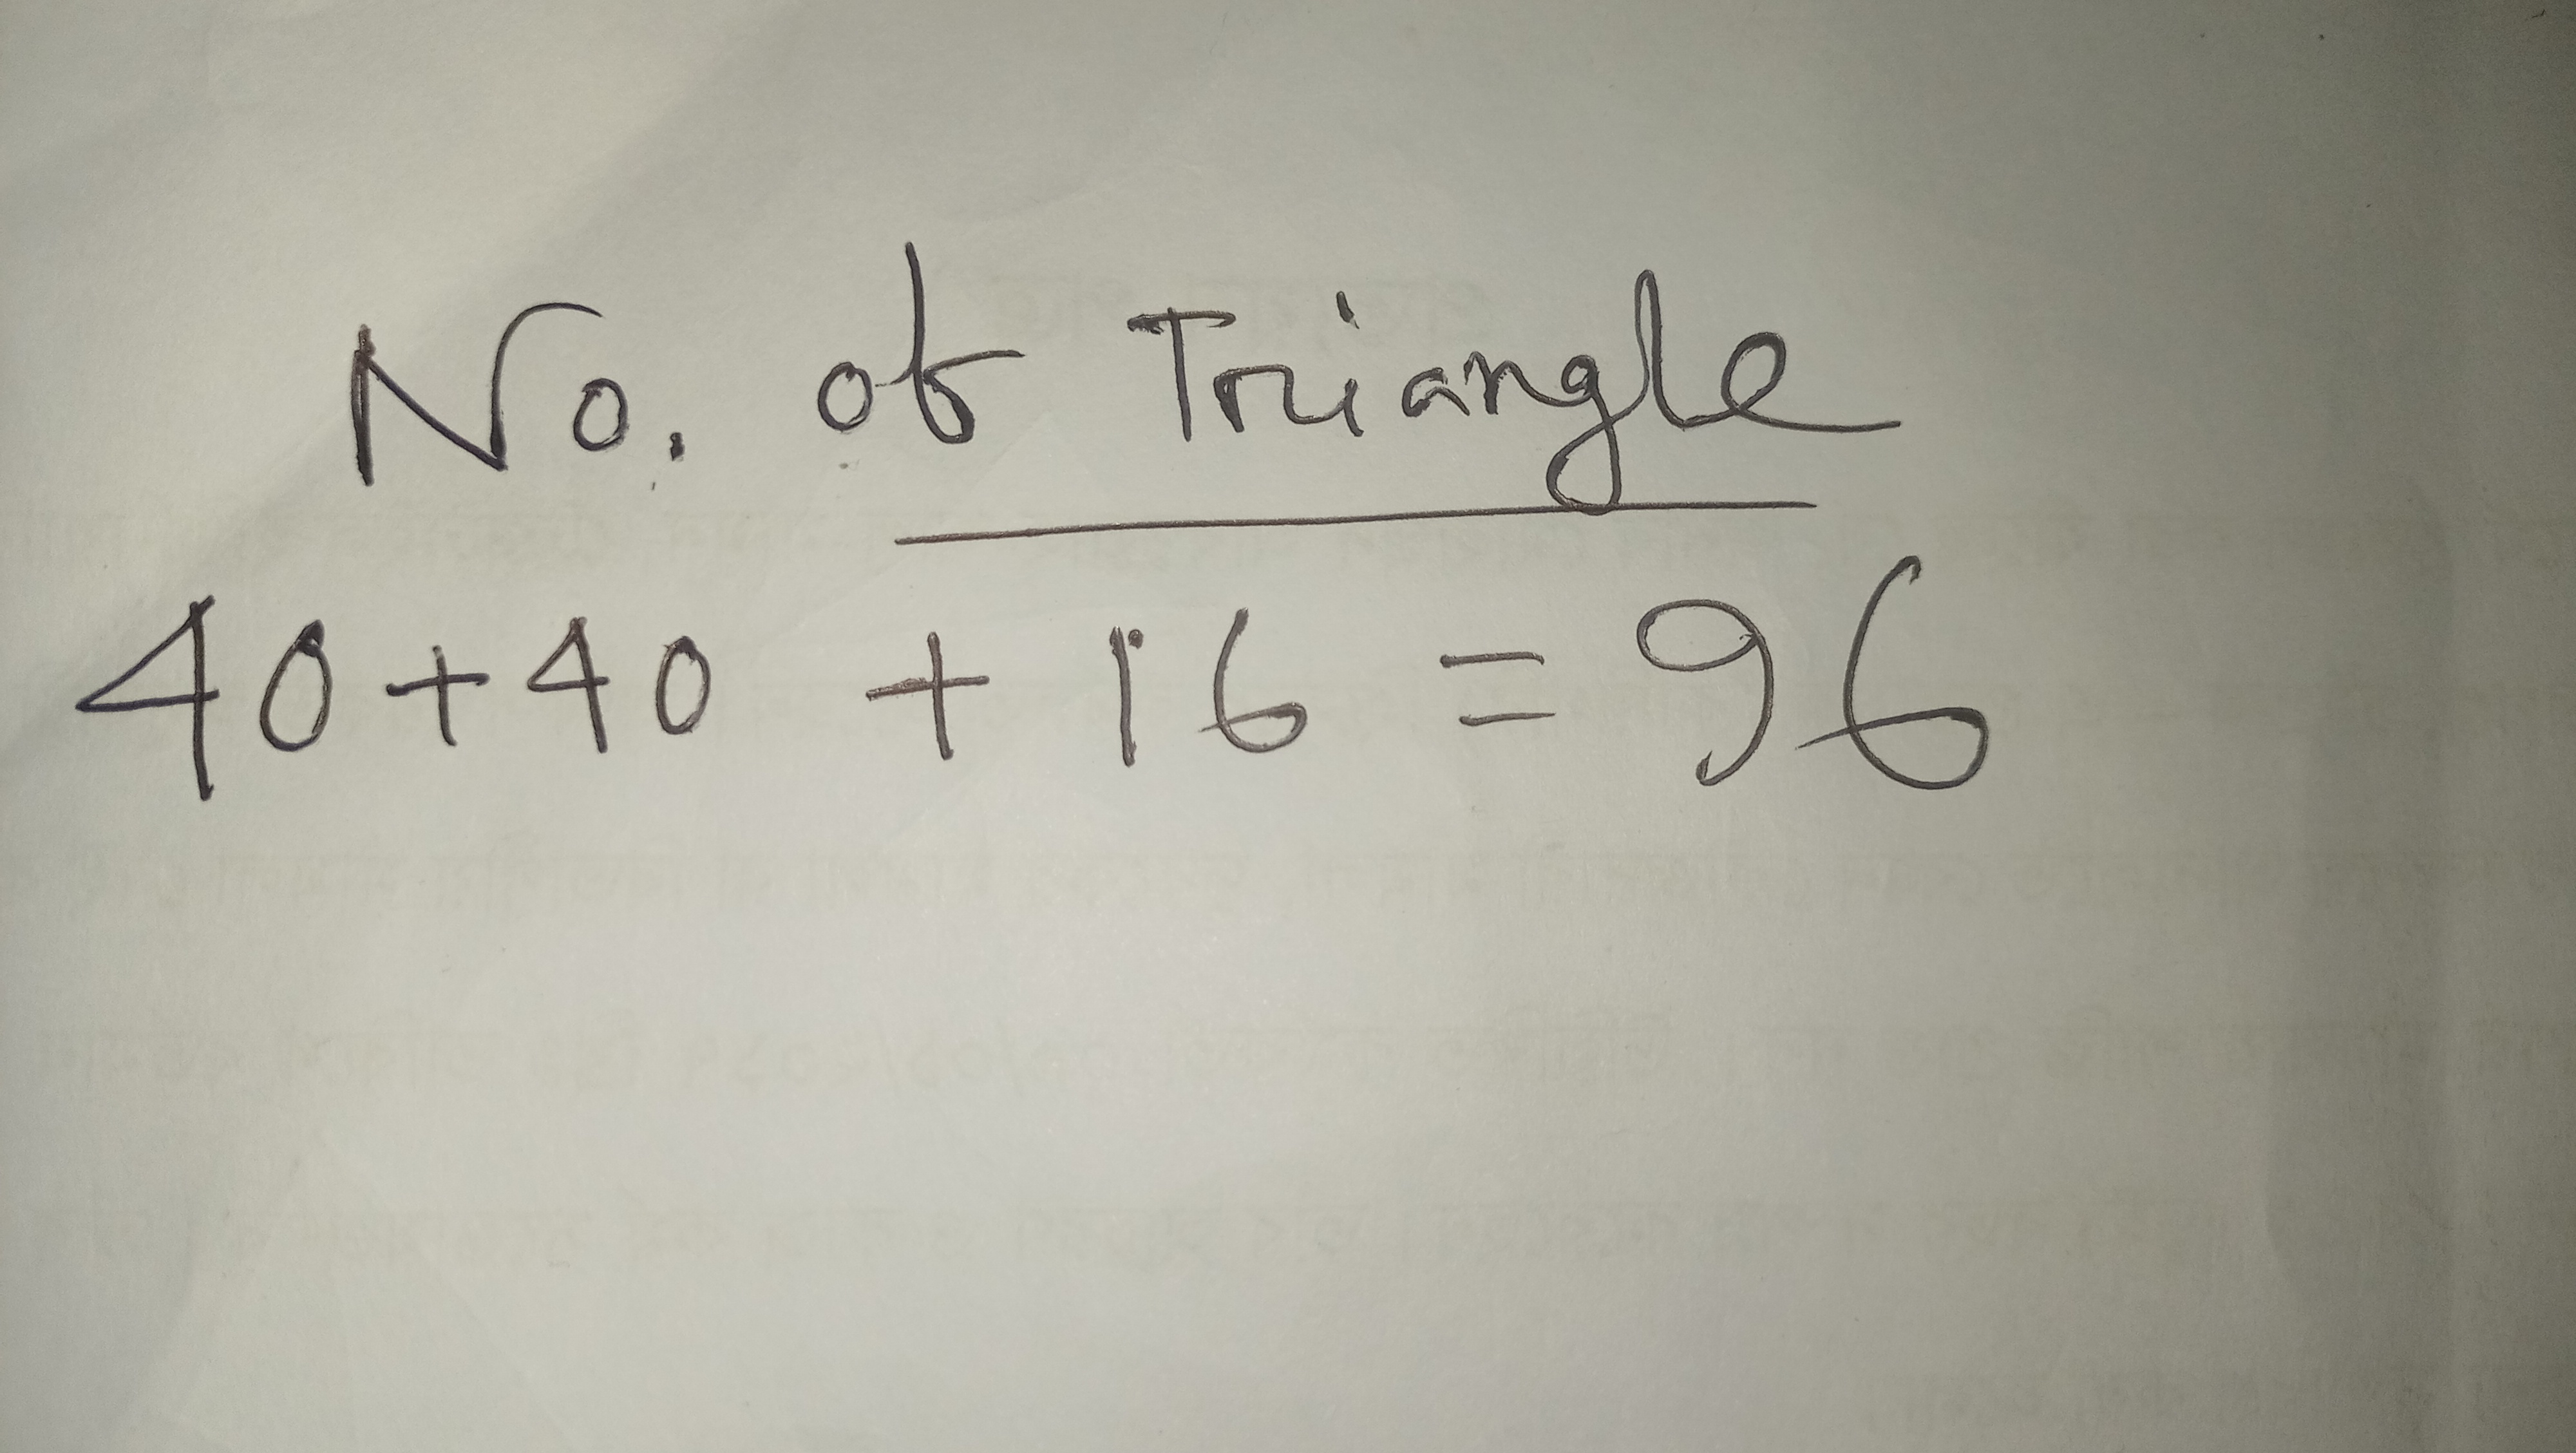 No. of Triangle
40+40 + 16 = 96